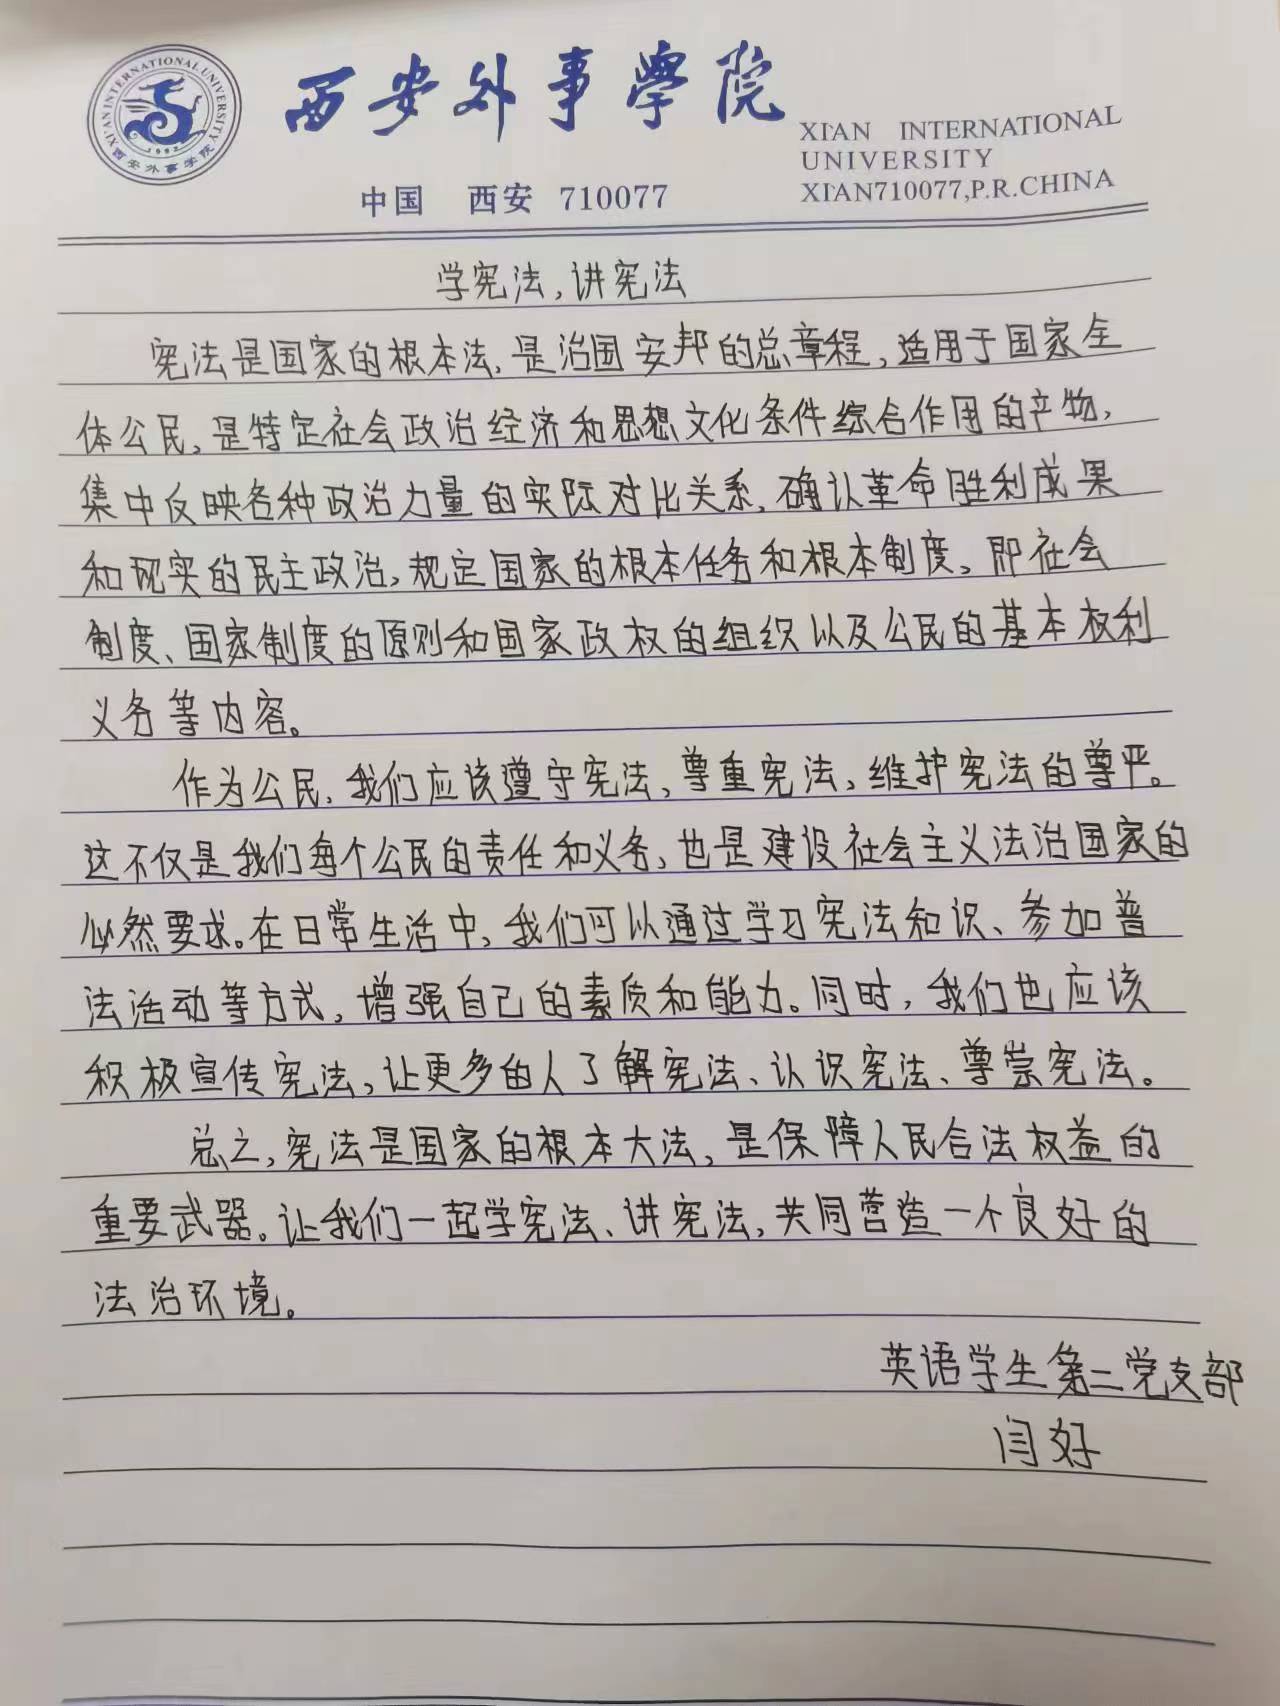 XI'AN INTERNATIONAL UNIVERSITY
1992
西安外事学院
西安外事学院
XI'AN INTERNATIONAL
UNIVERSITY
XI'AN710077,P.R.CHINA
中国 西安 710077
学宪法,讲宪法
宪法是国家的根本法,是治国安邦的总章程,适用于国家全
体公民,是特定社会政治经济和思想文化条件综合作用的产物,
集中反映各种政治力量的实际对比关系,确认革命胜利成果
和现实的民主政治,规定国家的根本任务和根本制度,即社会
制度、国家制度的原则和国家政权的组织以及公民的基本权利
义务等内容。
作为公民,我们应该遵守宪法,尊重宪法,维护宪法的尊严。
这不仅是我们每个公民的责任和义务,也是建设社会主义法治国家的
必然要求。在日常生活中,我们可以通过学习宪法知识、参加普
法活动等方式,增强自己的素质和能力。同时,我们也应该
积极宣传宪法,让更多的人了解宪法、认识宪法、尊崇宪法。
总之,宪法是国家的根本大法,是保障人民合法权益的
重要武器。让我们一起学宪法、讲宪法,共同营造一个良好的
法治环境。
英语学生第二党支部
闫好